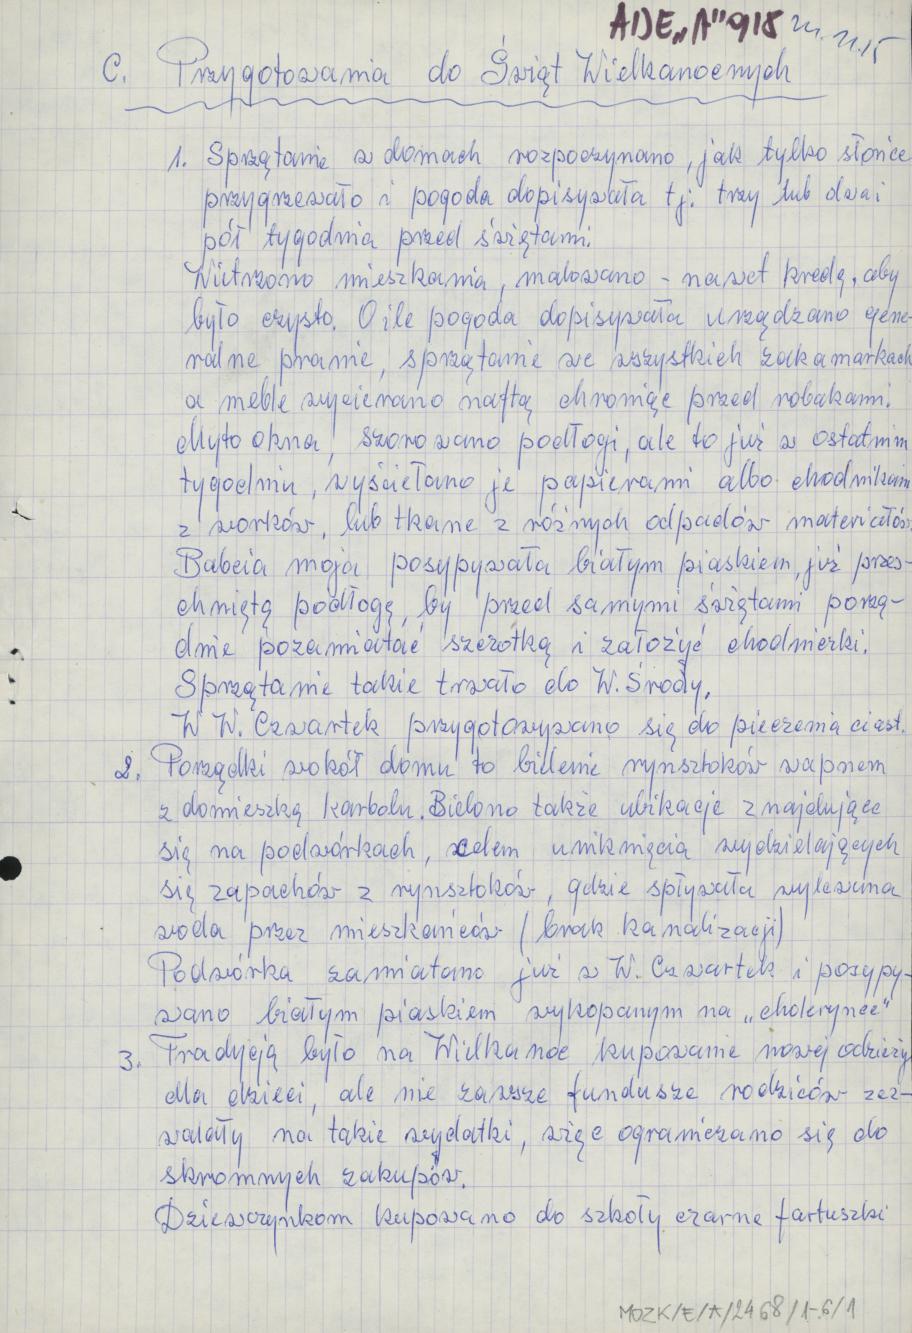 ADE „A" 918
C. Przygotowania do Świąt Wielkanocnych
1. Sprzątanie w domach rozpoczynano, jak tylko słońce
przygrzewało i pogoda dopisywała tj. trzy lub dwa i
pół tygodnia przed świętami.
Wietrzono mieszkania, malowano - nawet kredą, aby
było czysto. O ile pogoda dopisywała urządzano gene-
ralne pranie, sprzątanie we wszystkich zakamarkach
a meble wycierano naftą chroniąc przed robakami.
Myto okna, szorowano podłogi, ale to już w ostatnim
tygodniu, wyściełano je papierami albo chodnikami
z worków, lub tkane z różnych odpadów materiałów.
Babcia moja posypywała białym piaskiem, już przes-
chniętą podłogę, by przed samymi świętami porzą-
dnie pozamiatać szczotką i założyć chodniczki.
Sprzątanie takie trwało do W. Środy.
W W. Czwartek przygotowywano się do pieczenia ciast.
2. Porządki wokół domu to bielenie rynsztoków wapnem
z domieszką karbolu. Bielono także ubikacje znajdujące
się na podwórkach, celem uniknięcia wydzielających
się zapachów z rynsztoków, gdzie spływała wylewana
woda przez mieszkańców (brak kanalizacji)
Podwórka zamiatano już w W. Czwartek i posypy-
wano białym piaskiem wykopanym na „cholerynce"
3. Tradycją było na Wielkanoc kupowanie nowej odzieży
dla dzieci, ale nie zawsze fundusze rodziców zez-
walały na takie wydatki, więc ograniczano się do
skromnych zakupów.
Dziewczynkom kupowano do szkoły czarne fartuszki
MOZK/E/A/2468/1-6/1